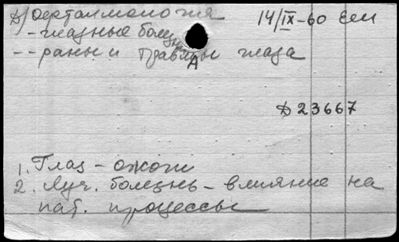 Офталмология 14/IX-60 Еси
- глазные болезн
-- раны и травмы глаза
Д 23667
1. Глаз - ожоги
2. Луч. болезнь - влияние на
пат. процессы